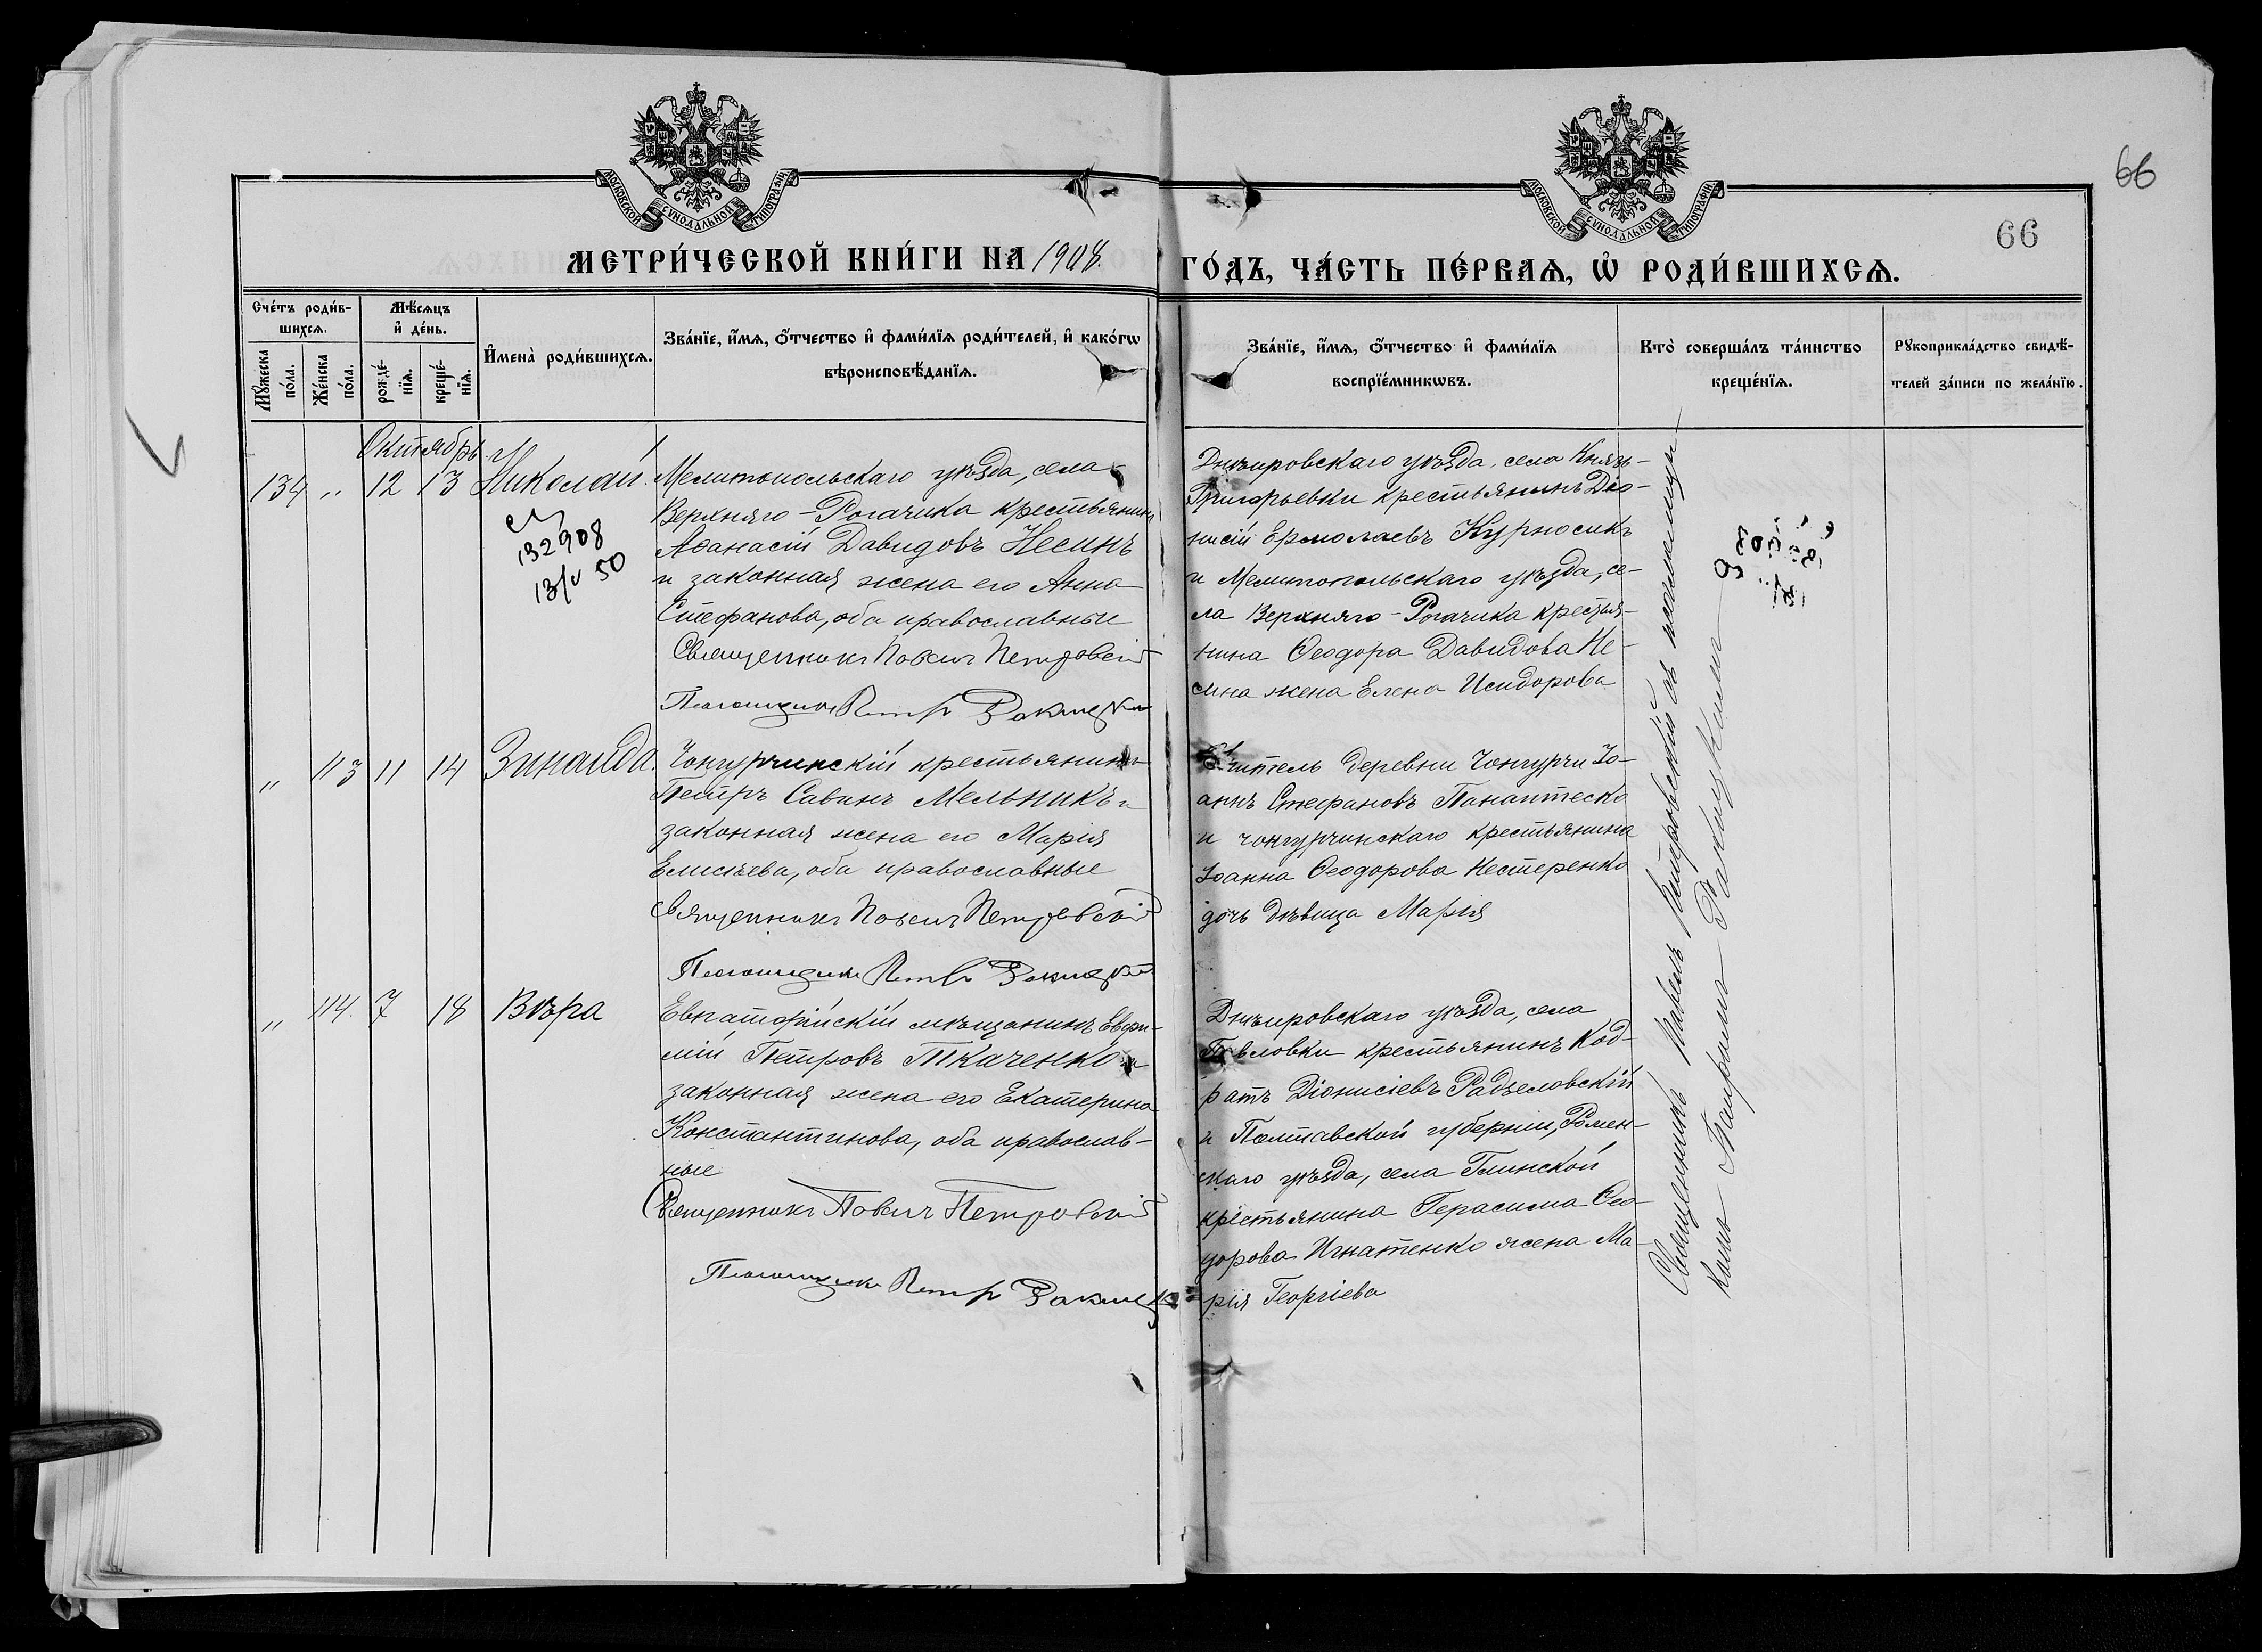 66
66
МОСКОВСКОЙ СУНОДАЛЬНОЙ ТИПОГРАФІИ
МОСКОВСКОЙ СУНОДАЛЬНОЙ ТИПОГРАФІИ
МЕТРИ́ЧЕСКОЙ КНИ́ГИ НА 1908.
ГО́ДЪ, ЧА́СТЬ ПЕ́РВАѦ, Ѡ҆ РОДИ́ВШИХСѦ.
Сче́тъ роди́в-
шихсѧ.
Мꙋ́жеска
по́ла.
Же́нска
по́ла.
Мѣ́сѧцъ
и҆ де́нь.
рожде́-
нїѧ.
креще́-
нїѧ.
И҆мена̀ роди́вшихсѧ.
Зва́нїе, и҆́мѧ, ѻ҆́тчество и҆ фами́лїѧ роди́телей, и҆ како́гѡ
вѣроисповѣ́данїѧ.
Зва́нїе, и҆́мѧ, ѻ҆́тчество и҆ фами́лїѧ
воспрїе́мникѡвъ.
Кто̀ соверша́лъ та́инство
креще́нїѧ.
Рꙋкоприкла́дство свидѣ́-
телей за́писи по жела́нїю.
Октябрь
134 " 12 13 Николай.
132908
13/V 50
Мелитопольскаго уѣзда, села
Верхняго-Рогачика крестьянинъ
Аѳанасій Давидовъ Несинъ
и законная жена его Анна
Стефанова, оба православные
Священникъ Павелъ Петровскій
Псаломщикъ Петр Ракицкій
Днѣпровскаго уѣзда, села Князь-
Григорьевки крестьянинъ Діо-
нисій Ермолаевъ Курносикъ
и Мелитопольскаго уѣзда, се-
ла Верхняго-Рогачика крестья-
нина Ѳеодора Давидова Не-
сина жена Елена Исидорова
" 113 11 14 Зинаида.
Чонгурчинскій крестьянинъ
Петръ Савинъ Мельникъ и
законная жена его Марія
Елисѣева, оба православные
Священникъ Павелъ Петровскій
Псаломщикъ Петр Ракицкій
Учитель деревни Чонгурчи Іо-
аннъ Стефановъ Панаитеско
и чонгурчинскаго крестьянина
Іоанна Ѳеодорова Нестеренко
дочь дѣвица Марія
" 114. 7 18 Вѣра
Евпаторійскій мѣщанинъ Евфи-
мій Петровъ Ткаченко и
законная жена его Екатерина
Константинова, оба православ-
ные
Священникъ Павелъ Петровскій
Псаломщикъ Петр Ракицкій
Днѣпровскаго уѣзда, села
Павловки крестьянинъ Код-
ратъ Діонисіевъ Радзеловскій
и Полтавской губерніи, Ромен-
скаго уѣзда, села Глинской
крестьянина Герасима Ѳео-
дорова Игнатенко жена Ма-
рія Георгіева
Священникъ Павелъ Петровскій съ псаломщи-
комъ Ракицкимъ